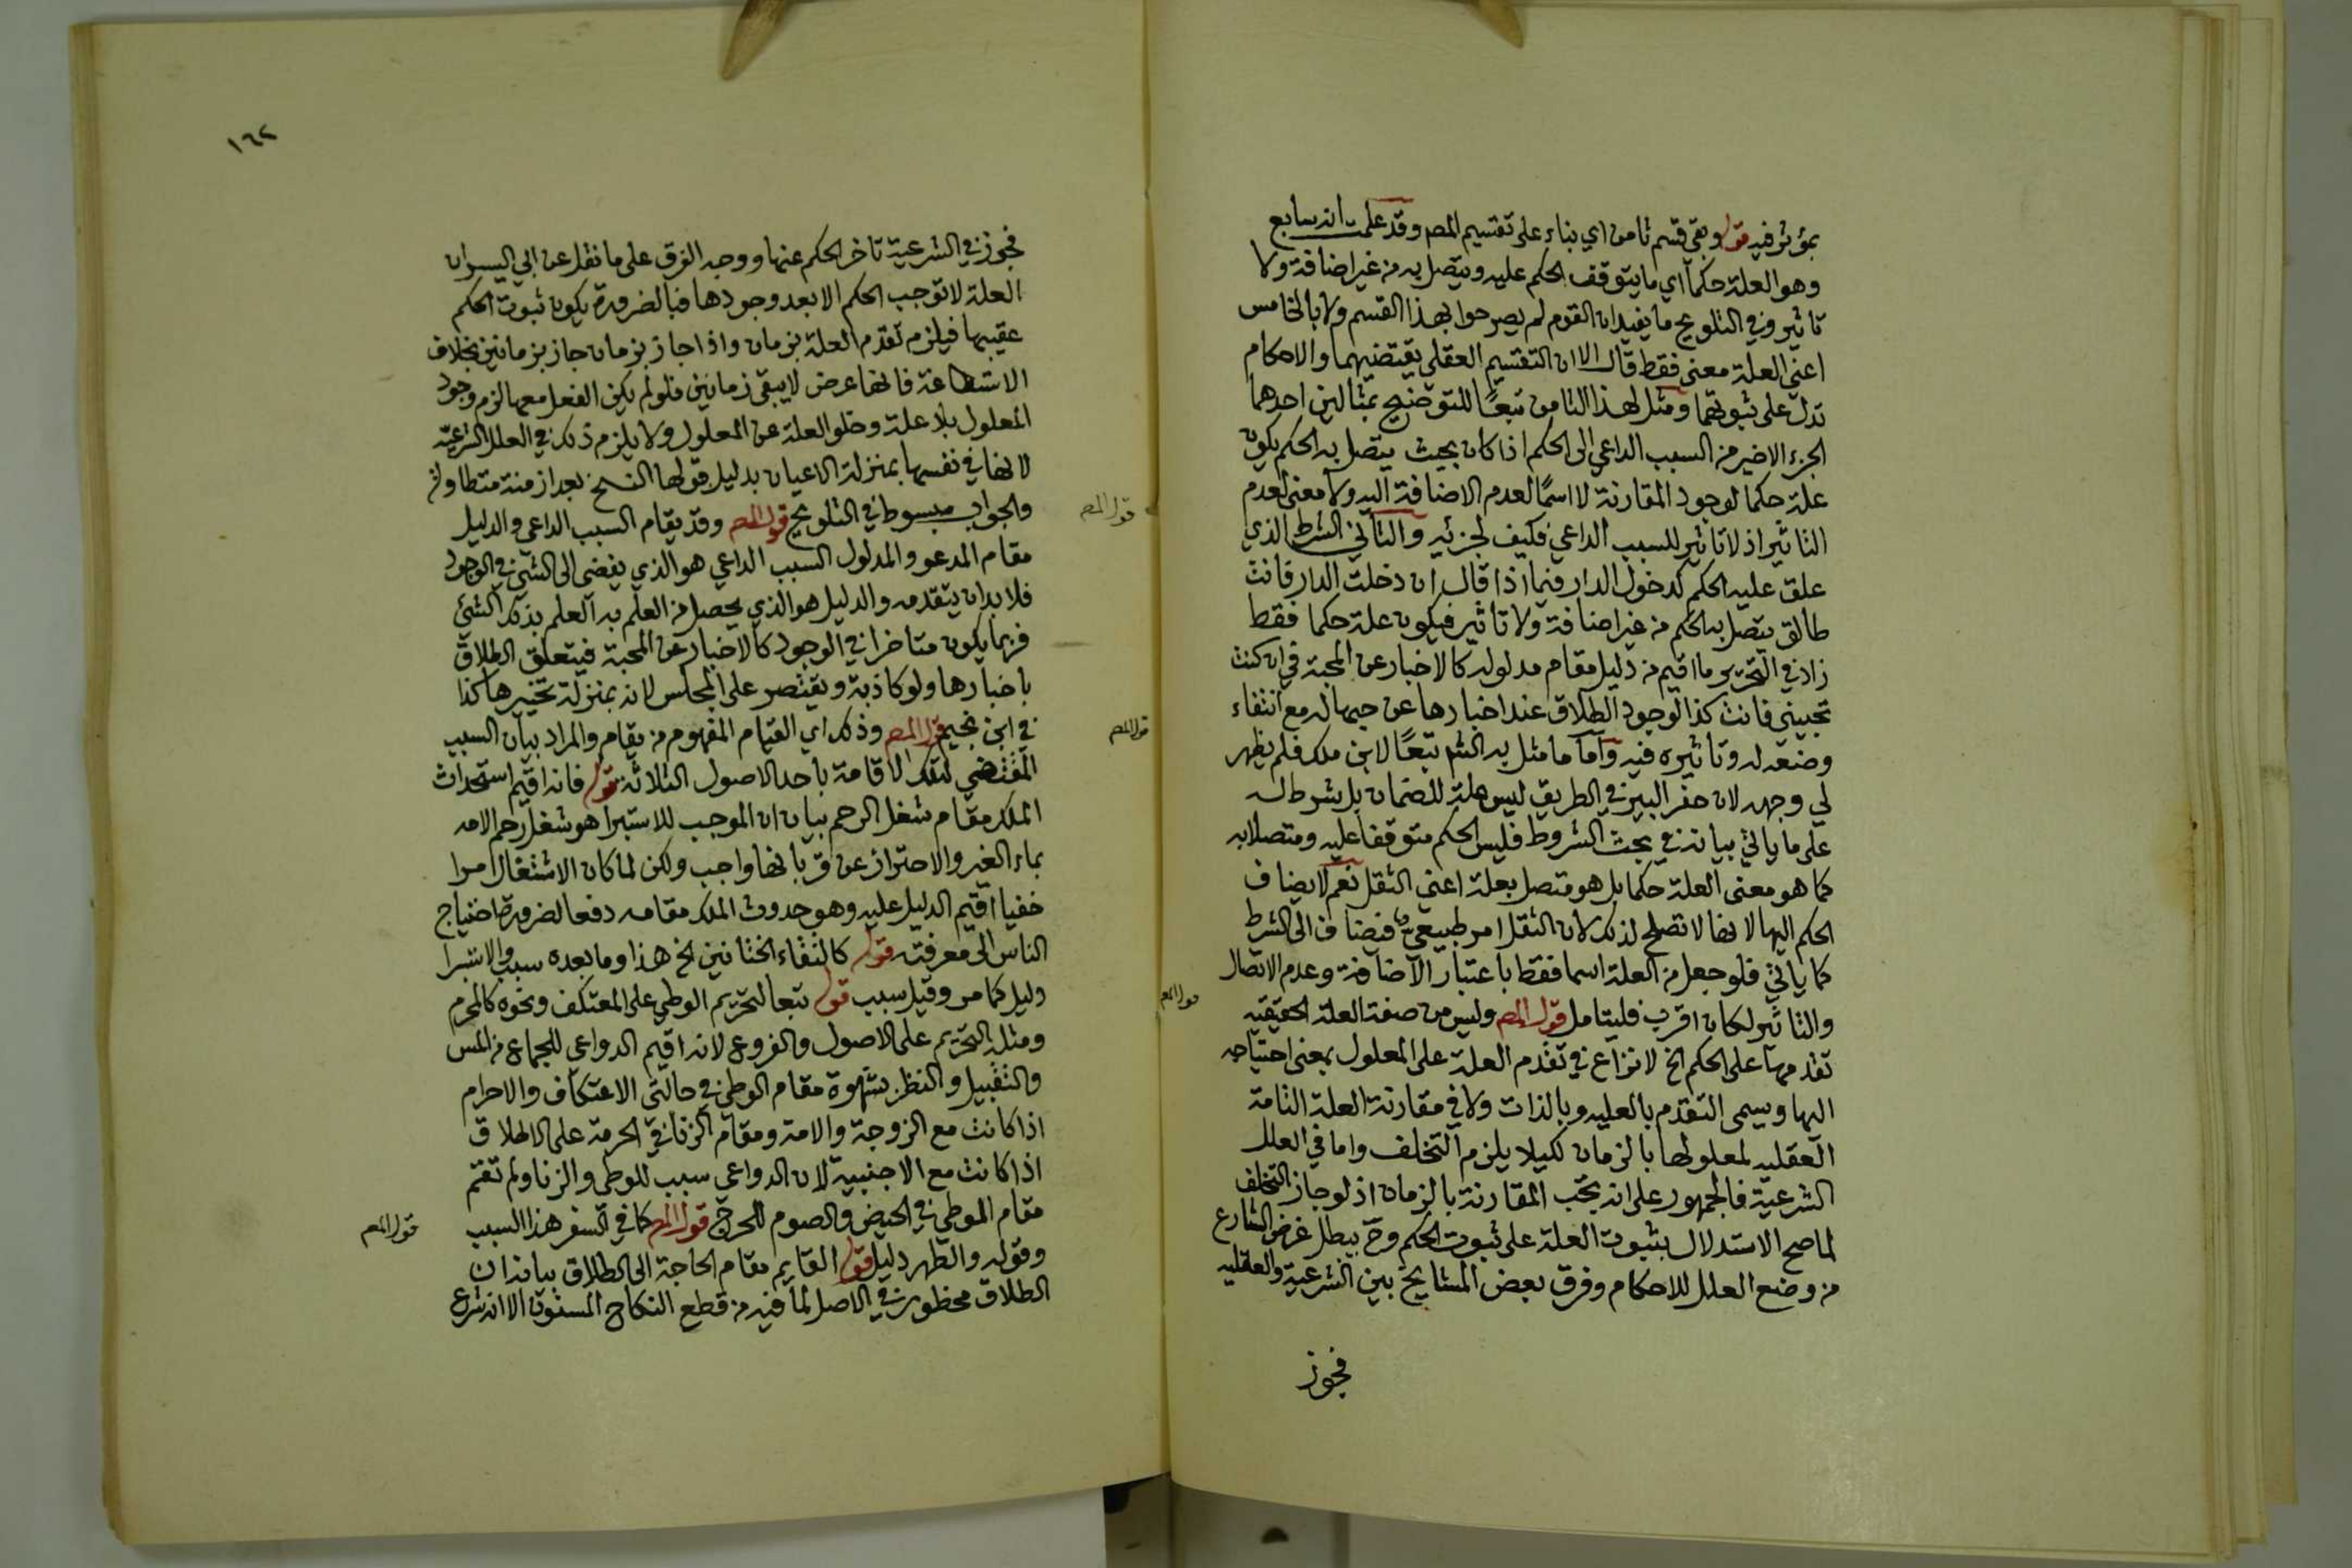 بمؤثر فيه قوله وبقي قسم ثامن اي بناء على تقسيم المص وقد علمت انه سابع
وهو العلة حكما اي ما يتوقف الحكم عليه ويتصل به من غير اضافة ولا
تاثير وفي التلويح ما يفيد ان القوم لم يصرحوا بهذا القسم ولا بالخامس
اعني العلة معنى فقط قال الا ان التقسيم العقلي يقتضيهما والاحكام
تدل على ثبوتهما ومثل لهذا الثامن تبعًا للتوضيح بمثالين احدهما
الجزء الاخير من السبب الداعي الى الحكم اذا كان بحيث يتصل به الحكم يكون
علة حكما لوجود المقارنة لا اسمًا لعدم الاضافة اليه ولا معنى لعدم
التاثير اذ لا تاثير للسبب الداعي فكيف لجزئه والثاني الشرط الذي
علق عليه الحكم كدخول الدار فيما اذا قال ان دخلت الدار فانت
طالق يتصل به الحكم من غير اضافة ولا تاثير فيكون علة حكما فقط
زاد في التحرير وما اقيم من دليل مقام مدلوله كالاخبار عن المحبة في ان كنت
تحبيني فانت كذا لوجود الطلاق عند اخبارها عن حبها له مع انتفاء
وضعه له وتاثيره فيه واما ما مثل به الشم تبعًا لابن ملك فلم يظهر
لي وجهه لان حفر البير في الطريق ليس علة للضمان بل شرط له
على ما ياتي بيانه في بحث الشروط فليس الحكم متوقفا عليه ومتصلا به
كما هو معنى العلة حكما بل هو متصل بعلة اعني الثقل نعم لا يضاف
الحكم اليها لانها لا تصلح لذلك لان الثقل امر طبيعي فيضاف الى الشرط
كما ياتي فلو جعل من العلة اسما فقط باعتبار الاضافة وعدم الاتصال
والتاثير لكان اقرب فليتامل قول المص وليس من صفة العلة الحقيقيه
تقدمها على الحكم الخ لا نزاع في تقدم العلة على المعلول بمعنى احتياجه
اليها ويسمى التقدم بالعليه وبالذات ولا في مقارنة العلة التامة
العقليه لمعلولها بالزمان لكيلا يلزم التخلف واما في العلل
الشرعية فالجمهور على انه يجب المقارنة بالزمان اذ لو جاز التخلف
لما صح الاستدلال بثبوت العلة على ثبوت الحكم وح يبطل غرض الشارع
من وضع العلل للاحكام وفرق بعض المشايخ بين الشرعية والعقليه
فجوز
قول المص
١٦٢
فجوز في الشرعية تاخر الحكم عنها ووجه الفرق على ما نقل عن ابي اليسر ان
العلة لا توجب الحكم الا بعد وجودها فبالضرورة يكون ثبوت الحكم
عقيبها فيلزم تقدم العلة بزمان واذا جاز بزمان جاز بزمانين بخلاف
الاستطاعة فانها عرض لا يبقى زمانين فلو لم يكن الفعل معها لزم وجود
المعلول بلا علة وخلو العلة عن المعلول ولا يلزم ذلك في العلل الشرعية
لانها في نفسها بمنزلة الاعيان بدليل قبولها الفسخ بعد ازمنة متطاولة
والجواب مبسوط في التلويح قول المص وقد يقام السبب الداعي والدليل
مقام المدعو والمدلول السبب الداعي هو الذي يفضي الى الشي في الوجود
فلا بد ان يتقدمه والدليل هو الذي يحصل من العلم به العلم بذلك الشئ
فربما يكون متاخرا في الوجود كالاخبار عن المحبة فيتعلق الطلاق
باخبارها ولو كاذبة ويقتصر على المجلس لانه بمنزلة تخييرها كذا
في ابن نجيم قول المص وذلك اي القيام المفهوم من يقام والمراد بيان السبب
المقتضي لتلك الاقامة باحد الاصول الثلاثة قوله فانه اقيم استحداث
الملك مقام شغل الرحم بيان ان الموجب للاستبرا هو شغل رحم الامه
بماء الغير والاحتراز عن قربانها واجب ولكن لما كان الاشتغال امرا
خفيا اقيم الدليل عليه وهو حدوث الملك مقامه دفعا لضرورة احتياج
الناس الى معرفته قوله كالتقاء الختانين الخ هذا وما بعده سبب والاستبرا
دليل كما مر وقيل سبب قوله تبعا لتحريم الوطي على المعتكف ونحوه كالمحرم
ومثله التحريم على الاصول والفروع لانه اقيم الدواعي للجماع من المس
والتقبيل والنظر بشهوة مقام الوطي في حالتي الاعتكاف والاحرام
اذا كانت مع الزوجة والامة ومقام الزنا في الحرمة على الاطلاق
اذا كانت مع الاجنبية لان الدواعي سبب للوطي والزنا ولم تقم
مقام الوطي في الحيض والصوم للحرج قول المص كما في السفر هذا السبب
وقوله والطهر دليل قوله القايم مقام الحاجة الى الطلاق بيانه ان
الطلاق محظور في الاصل لما فيه من قطع النكاح المسنون الا انه شرع
قول المص
قول المص
قول المص